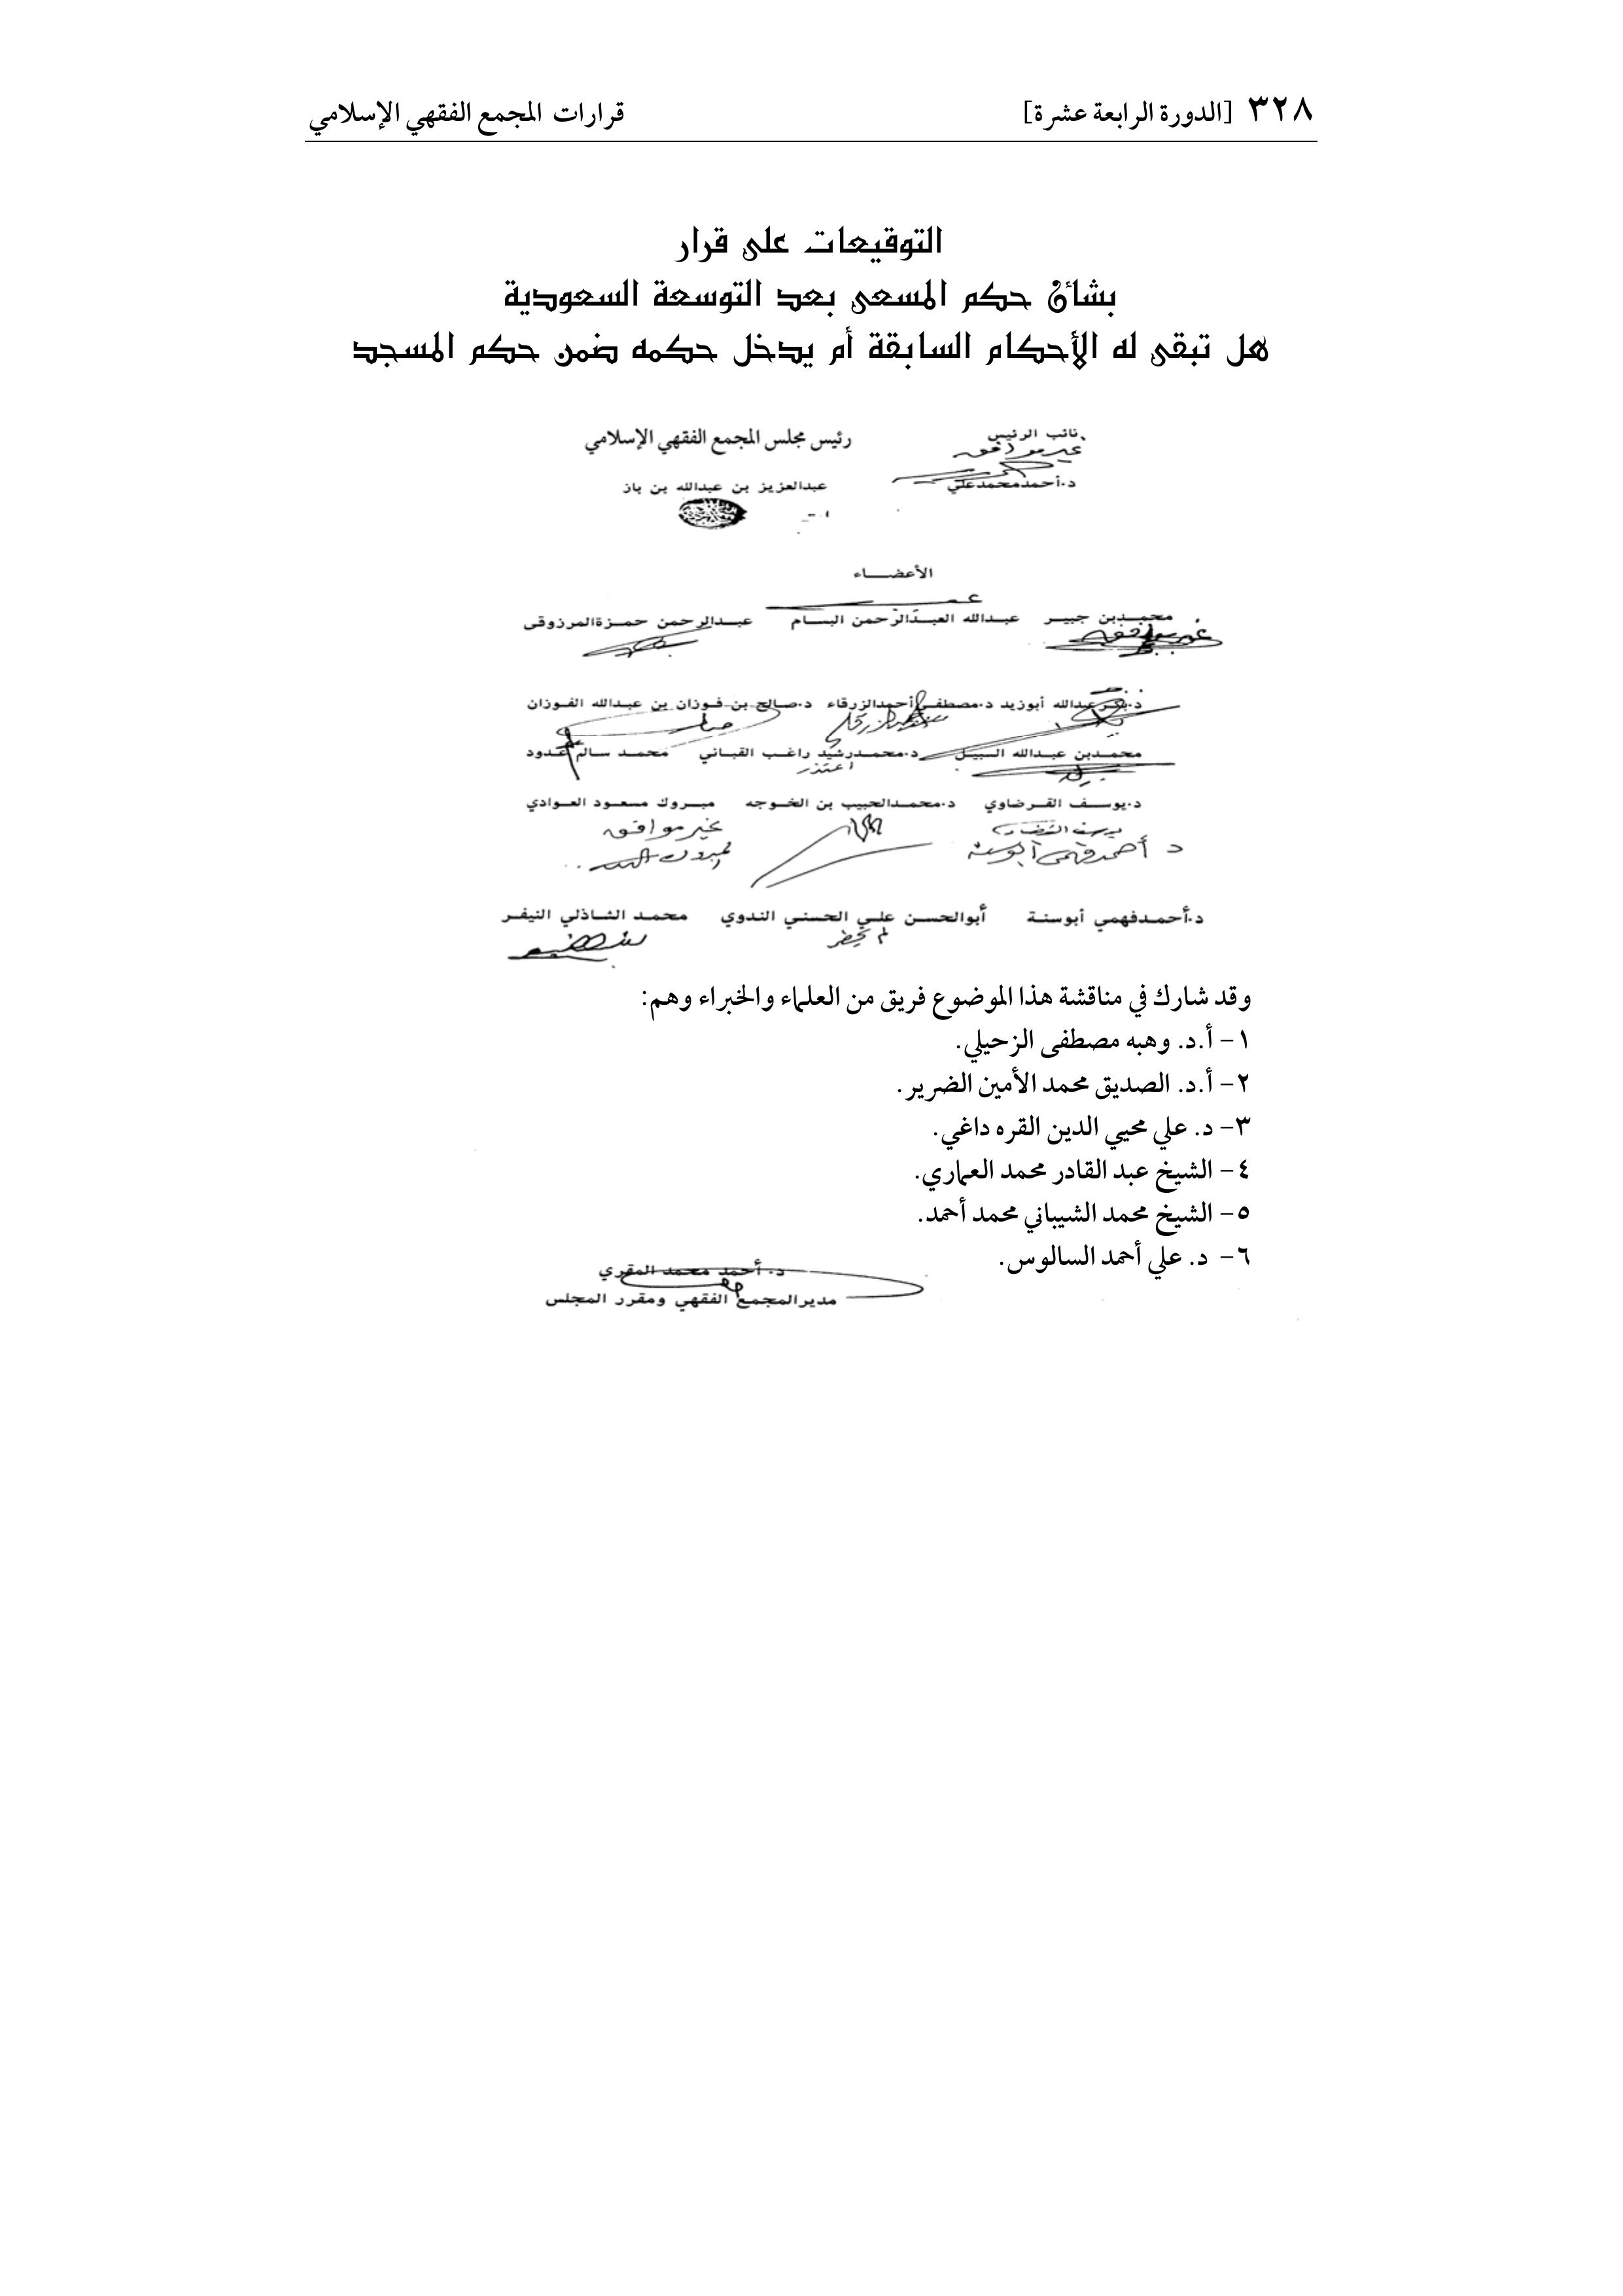 ٣٢٨ [الدورة الرابعة عشرة] قرارات المجمع الفقهي الإسلامي
التوقيعات على قرار
بشأن حكم المسعى بعد التوسعة السعودية
هل تبقى له الأحكام السابقة أم يدخل حكمه ضمن حكم المسجد
نائب الرئيس رئيس مجلس المجمع الفقهي الإسلامي
غير موافق
د.أحمد محمد علي عبدالعزيز بن عبدالله بن باز
الأعضـــاء
محمـدبن جبيـر عبـدالله العبـدالرحمن البسـام عبـدالرحمن حمـزةالمرزوقى
غير موافق
د.بكر عبدالله أبوزيد د.مصطفى أحمدالزرقاء د.صالح بن فـوزان بن عبدالله الفـوزان
محمـدبن عبـدالله السبيـل د.محمـدرشيد راغـب القبـاني محمـد سالم عدود
اعتذر
د.يوسـف القـرضاوي د.محمـدالحبيب بن الخـوجه مبـروك مسعـود العـوادي
غير موافق
د أحمد فهمي أبو سنة
د.أحمـدفهمي أبوسنـة أبوالحسـن علـي الحسنـي الندوي محمـد الشـاذلي النيفـر
لم يحضر
وقد شارك في مناقشة هذا الموضوع فريق من العلماء والخبراء وهم:
١- أ.د. وهبه مصطفى الزحيلي.
٢- أ.د. الصديق محمد الأمين الضرير.
٣- د. علي محيي الدين القره داغي.
٤- الشيخ عبد القادر محمد العماري.
٥- الشيخ محمد الشيباني محمد أحمد.
٦- د. علي أحمد السالوس.
د. أحمد محمد المقري
مديرالمجمع الفقهي ومقرر المجلس